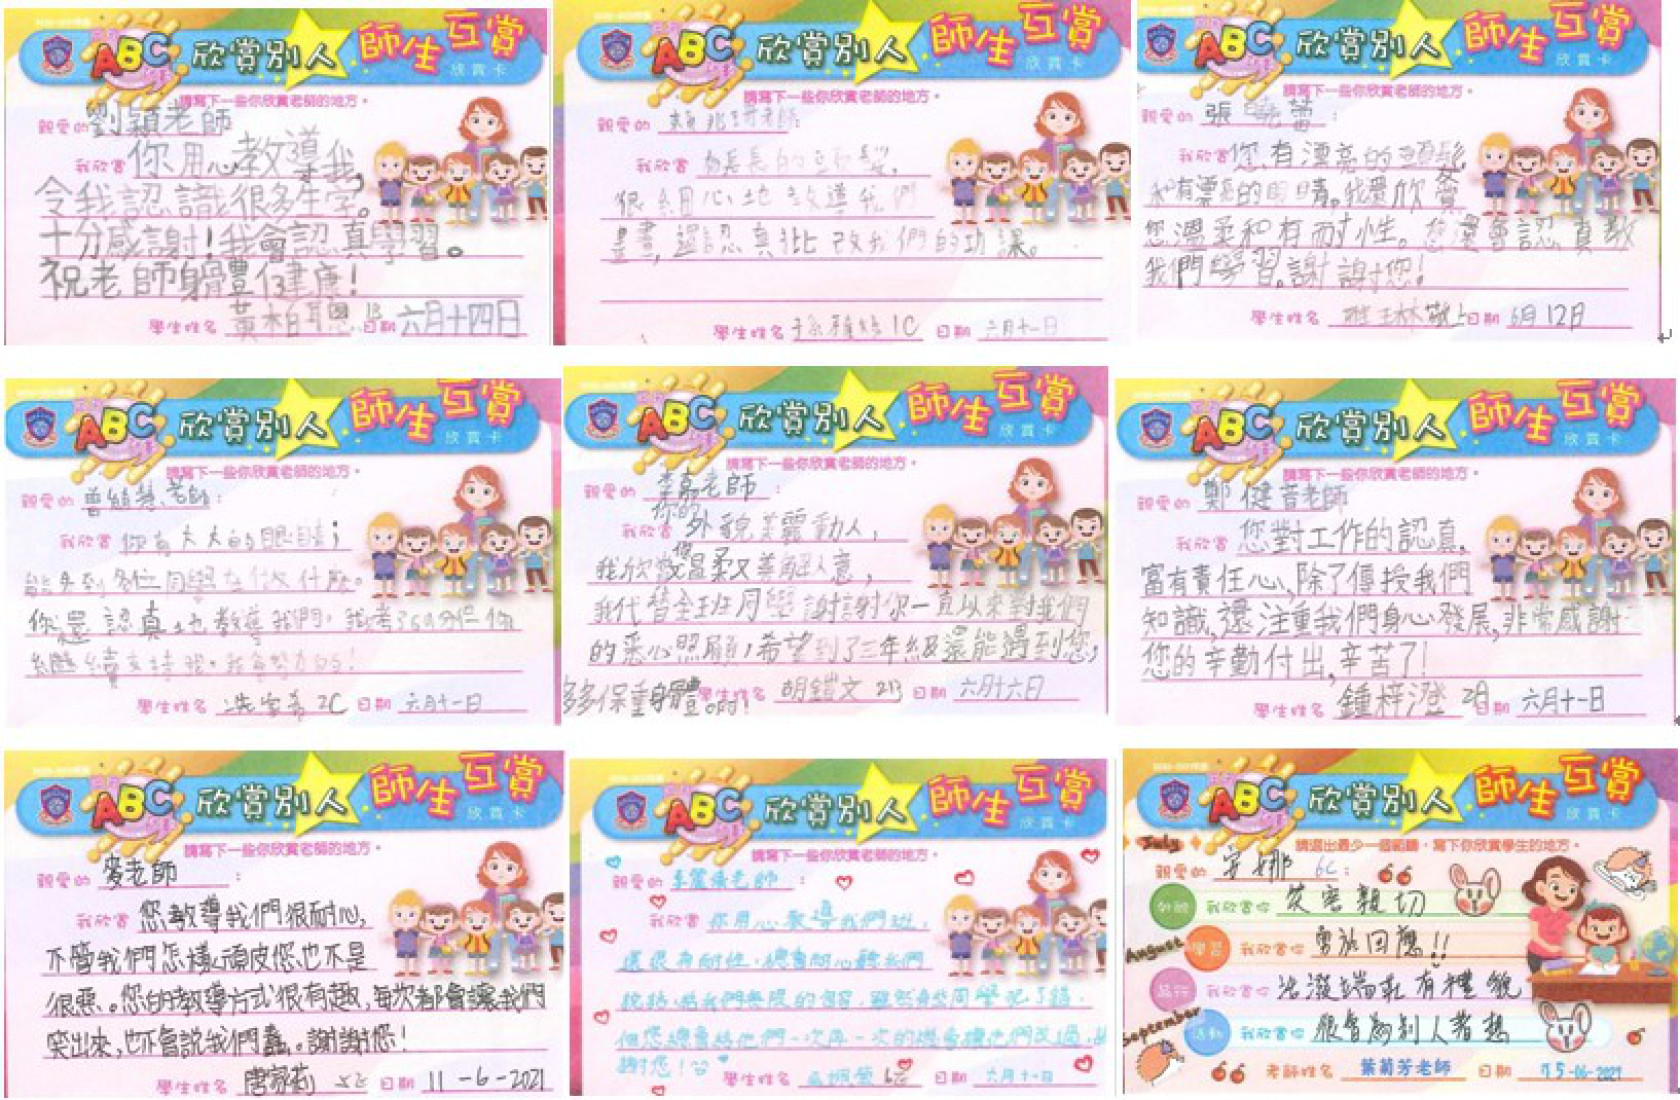 ABC 欣賞別人 師生互賞
欣賞卡
請寫下一些你欣賞老師的地方。
親愛的 劉穎老師
我欣賞 你用心教導我,
令我認識很多生字。
十分感謝!我會認真學習。
祝老師身體健康!
學生姓名 黃柏聰 1B 日期 六月十四日
ABC 欣賞別人 師生互賞
欣賞卡
請寫下一些你欣賞老師的地方。
親愛的 老師:
我欣賞
很細心地教導我們
畫畫,還認真批改我們的功課。
學生姓名 1C 日期 六月十一日
ABC 欣賞別人 師生互賞
欣賞卡
請寫下一些你欣賞老師的地方。
親愛的 張 蕾 :
我欣賞 您有漂亮的頭髮
和有漂亮的眼睛。我還欣賞
您溫柔和有耐性。您還會認真教
我們學習。謝謝您!
學生姓名 敬上 日期 6月12日
ABC 欣賞別人 師生互賞
欣賞卡
請寫下一些你欣賞老師的地方。
親愛的 曾 老師:
我欣賞 你有大大的眼睛;
能看到各位同學在做什麼。
你還認真地教導我們。我考了 分但你
繼續支持我。我會努力的!
學生姓名 2C 日期 六月十一日
ABC 欣賞別人 師生互賞
欣賞卡
請寫下一些你欣賞老師的地方。
親愛的 李嘉老師 :
我欣賞 你的外貌美麗動人,
我欣賞您溫柔又善解人意,
我代替全班同學謝謝你一直以來對我們
的悉心照顧,希望到了三年級還能遇到您,
多多保重身體啊!
學生姓名 胡鎧文 2B 日期 六月十六日
ABC 欣賞別人 師生互賞
欣賞卡
請寫下一些你欣賞老師的地方。
親愛的 鄭健音老師
我欣賞 您對工作的認真,
富有責任心,除了傳授我們
知識,還注重我們身心發展,非常感謝
您的辛勤付出,辛苦了!
學生姓名 鍾梓澄 日期 六月十一日
ABC 欣賞別人 師生互賞
欣賞卡
請寫下一些你欣賞老師的地方。
親愛的 麥老師 :
我欣賞 您教導我們很耐心,
不管我們怎樣頑皮您也不是
很惡。您的教導方式很有趣,每次都會讓我們
笑出來,也不會說我們蠢。謝謝您!
學生姓名 唐詠莉 日期 11-6-2021
ABC 欣賞別人 師生互賞
欣賞卡
請寫下一些你欣賞老師的地方。
親愛的 老師 :
我欣賞 你用心教導我們班,
還很有耐性,總會耐心聽我們
說話,給我們無限的包容。雖然有些同學犯了錯,
但您總會給他們一次再一次的機會讓他們改過,
謝謝您!
學生姓名 日期 六月十一日
ABC 欣賞別人 師生互賞
欣賞卡
請選出最少一個範疇,寫下你欣賞學生的地方。
July
親愛的 安娜 6C :
外貌 我欣賞你 笑容親切
August
學習 我欣賞你 勇於回應!!
品行 我欣賞你 活潑端莊有禮貌
September
活動 我欣賞你 很會為別人著想
老師姓名 葉菊芳老師 日期 15-06-2021